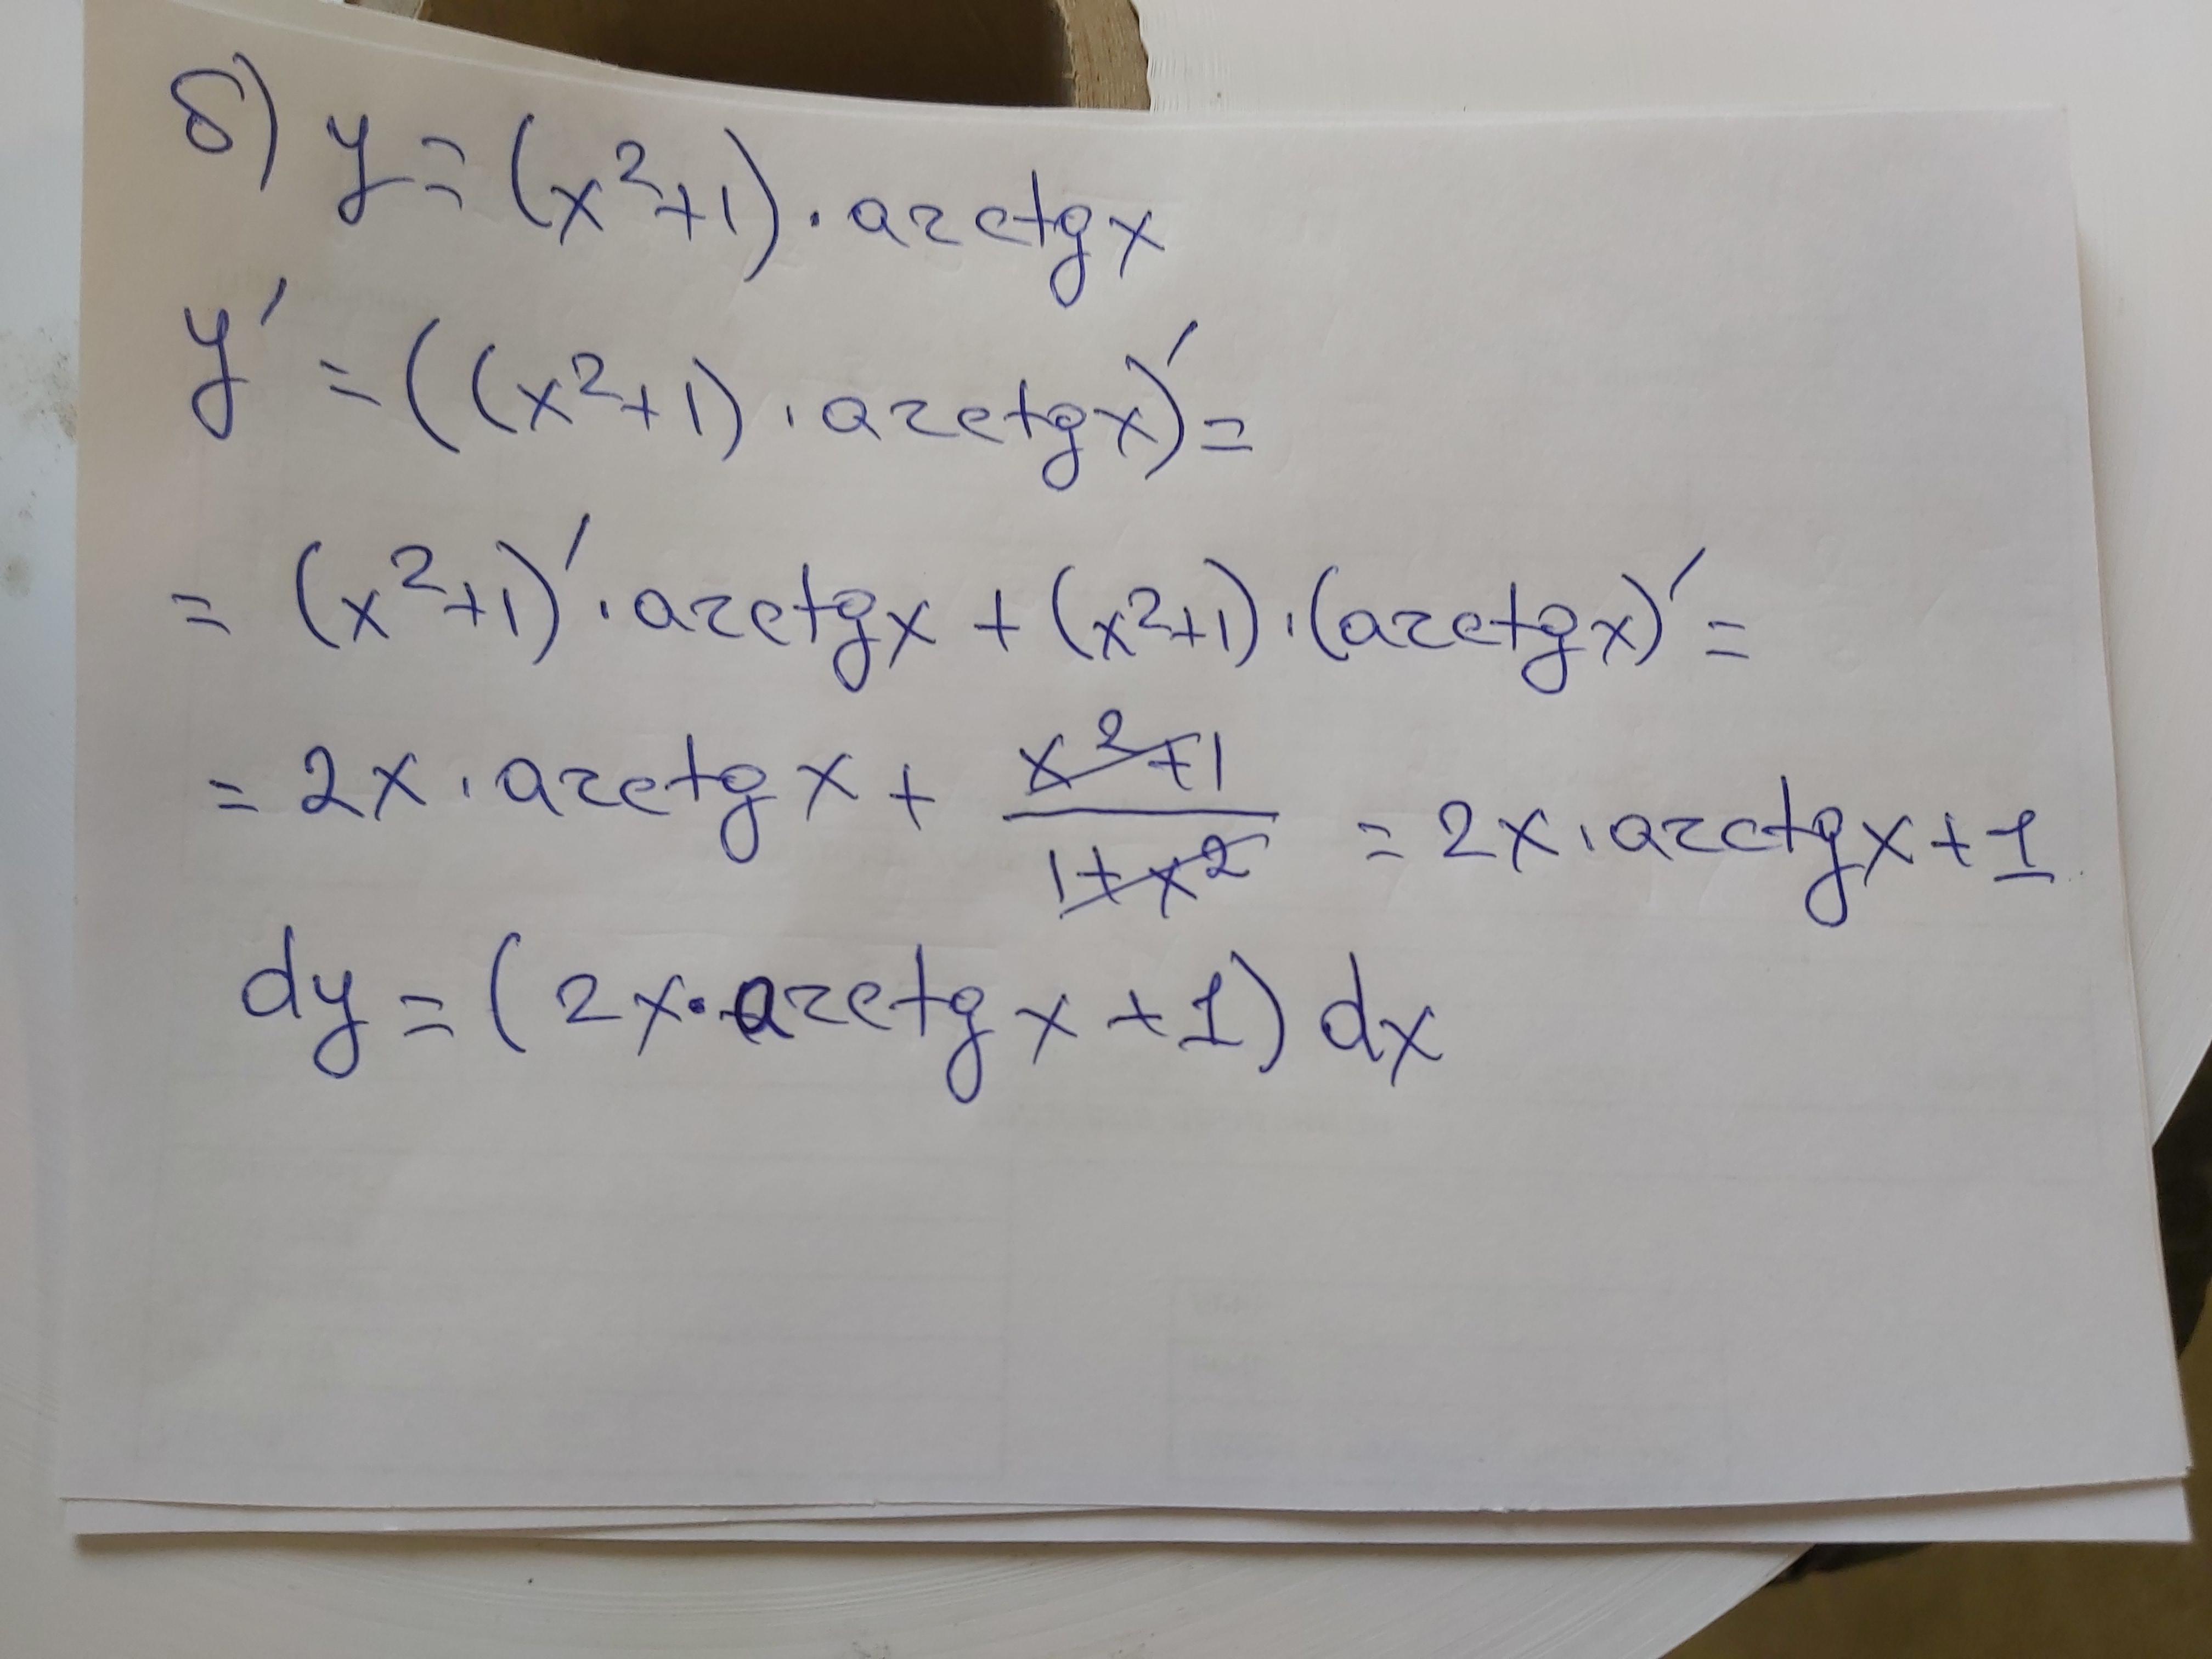 б) y = (x²+1) · arctgx
y' = ((x²+1) · arctgx)' =
= (x²+1)' · arctgx + (x²+1) · (arctgx)' =
= 2x · arctgx + (x²+1)/(1+x²) = 2x · arctgx + 1
dy = (2x · arctgx + 1) dx